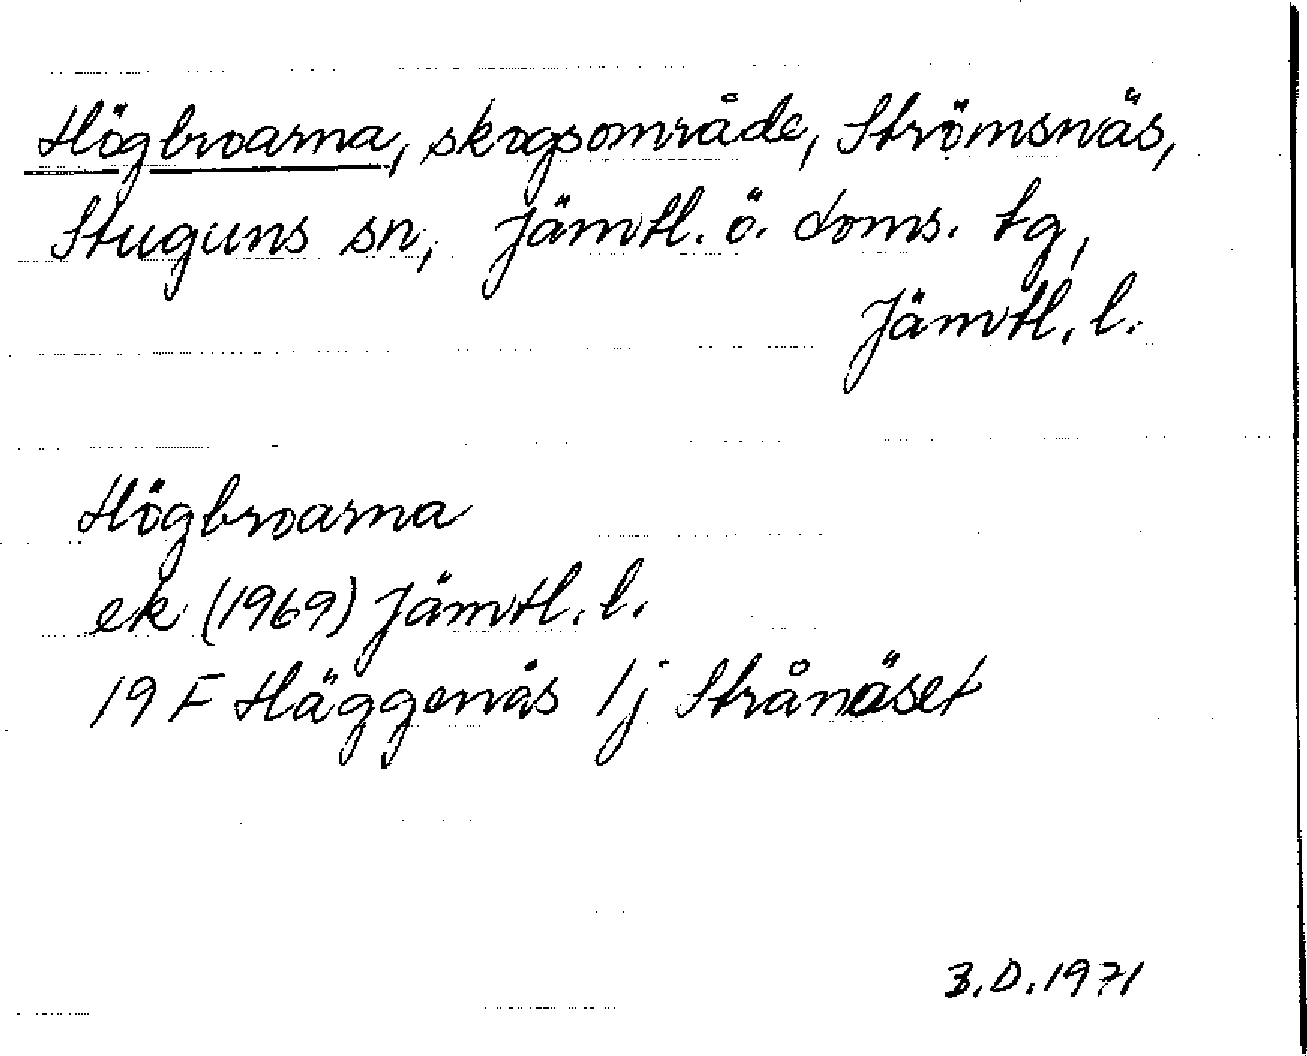 Högbroarna, skogsområde, Strömsnäs,
Stuguns sn, Jämtl. ö. doms. tg,
Jämtl. l.
Högbroarna
ek (1969) Jämtl. l.
19 F Häggenås 1j Strånäset
B.D.1971